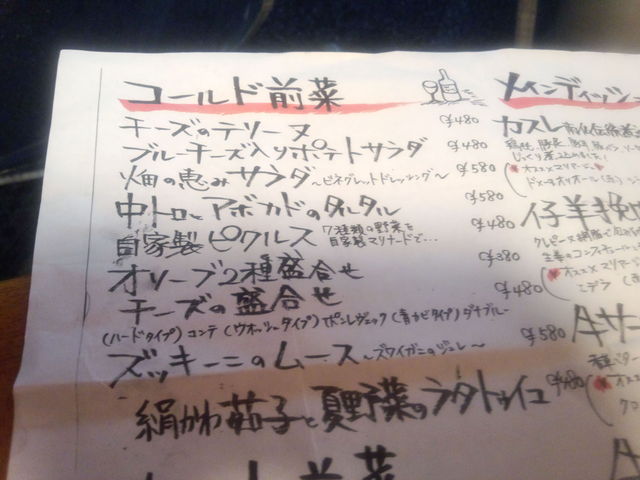 コールド前菜
チーズのテリーヌ ¥480
ブルーチーズ入りポテトサラダ ¥480
畑の恵みサラダ~ビネグレットドレッシング~ ¥580
中トロとアボカドのタルタル ¥580
自家製ピクルス 7種類の野菜を自家製マリナードで… ¥480
オリーブ2種盛合せ ¥380
チーズの盛合せ ¥480
(ハードタイプ)コンテ(ウオッシュタイプ)ポンレヴェック(青カビタイプ)ダナブルー
ズッキーニのムース~ズワイガニのジュレ~ ¥580
絹かわ茄子と夏野菜のラタトゥイユ ¥480
前菜
メインディッシュ
カスレ
じっくり煮込みました!
オススメマリアージュ
仔羊
オススメマリアージュ